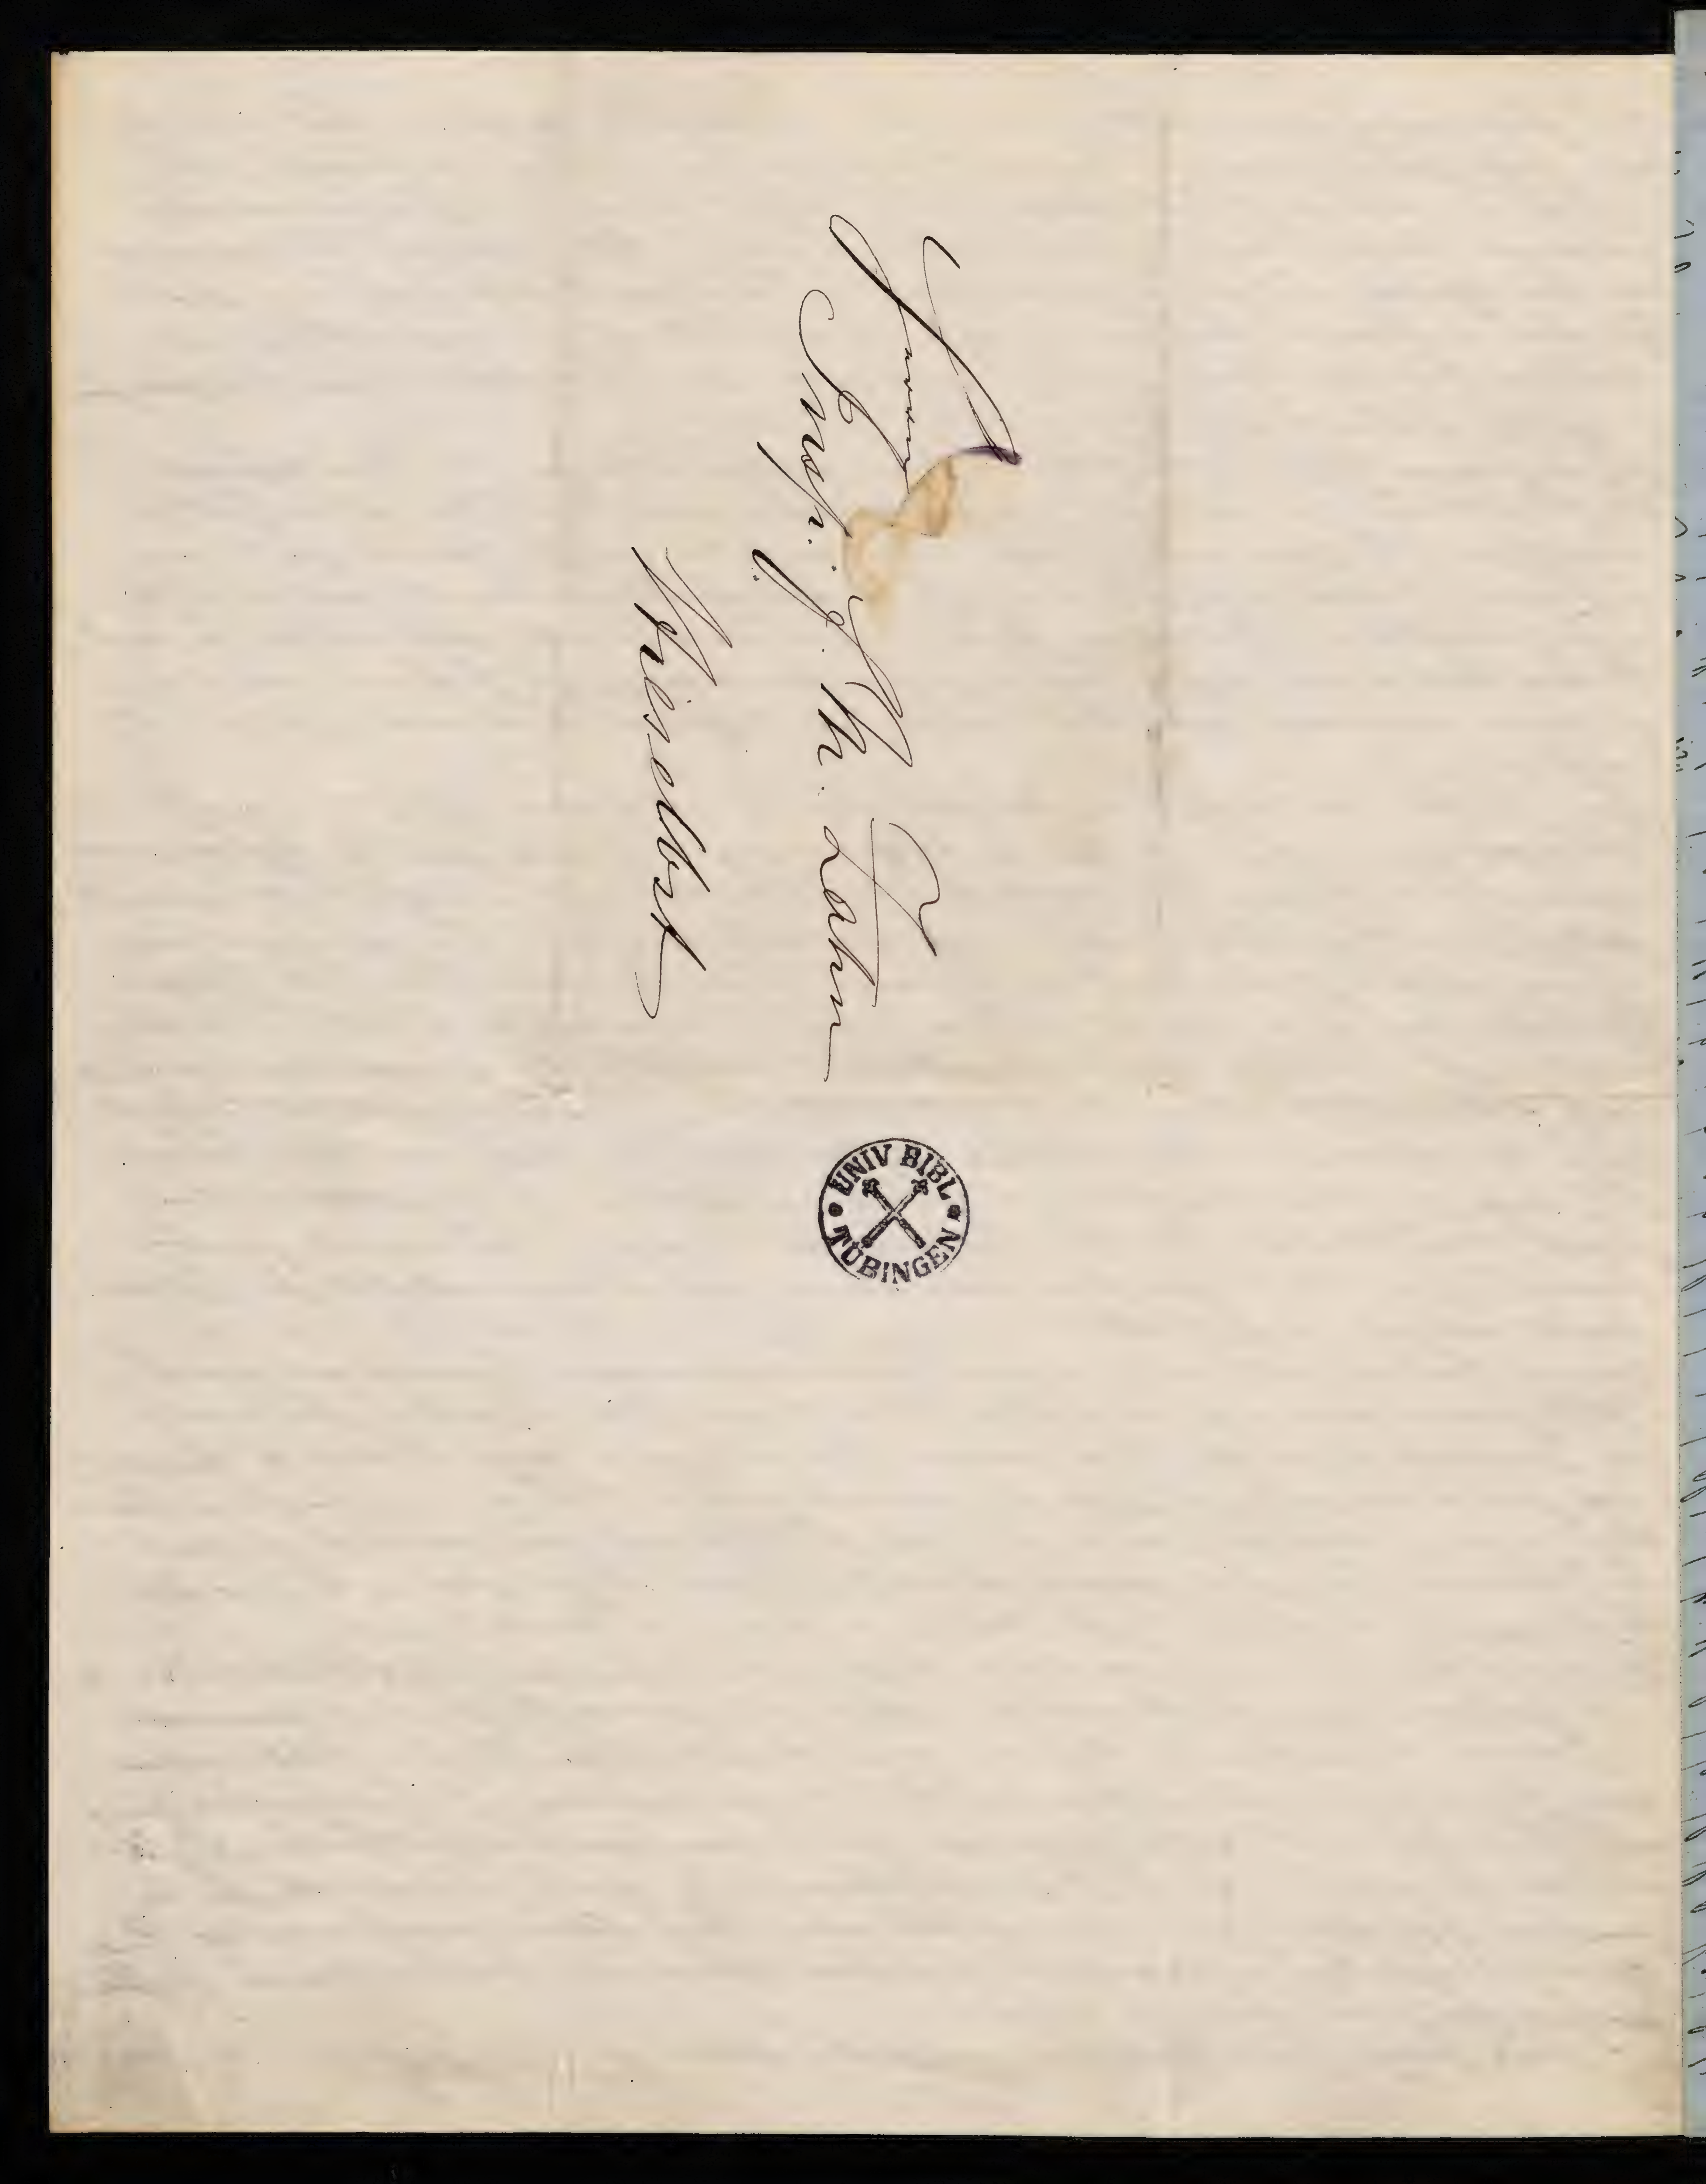 Herrn
Insp. F. M. Zahn
Hieselbst
UNIV BIBL
TÜBINGEN